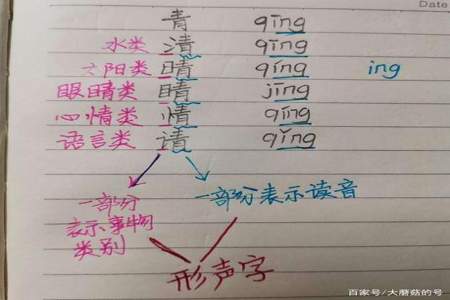 Date
青 qīng
水类 清 qīng
太阳类 晴 qíng ing
眼睛类 睛 jīng
心情类 情 qíng
语言类 请 qǐng
一部分
表示事物
类别
一部分表示读音
形声字
百家号/大蘑菇的号